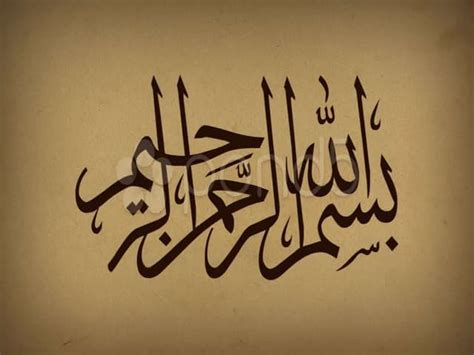 بسم الله الرَّحمن الرحيم
pond5